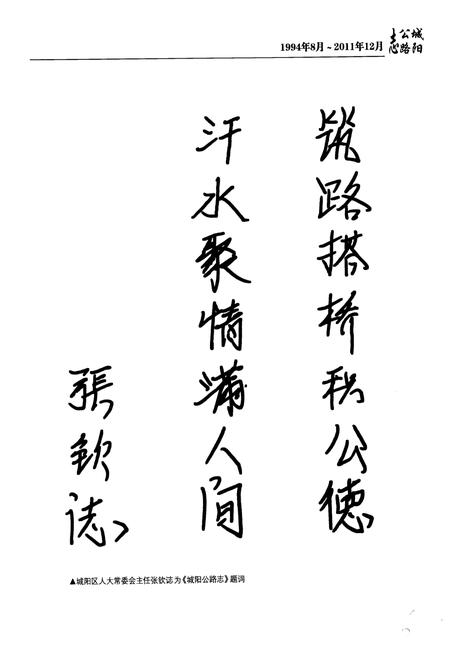 1994年8月~2011年12月
城阳公路志
筑路搭桥积公德
汗水聚情满人间
張钦誌
▲城阳区人大常委会主任张钦誌为《城阳公路志》题词